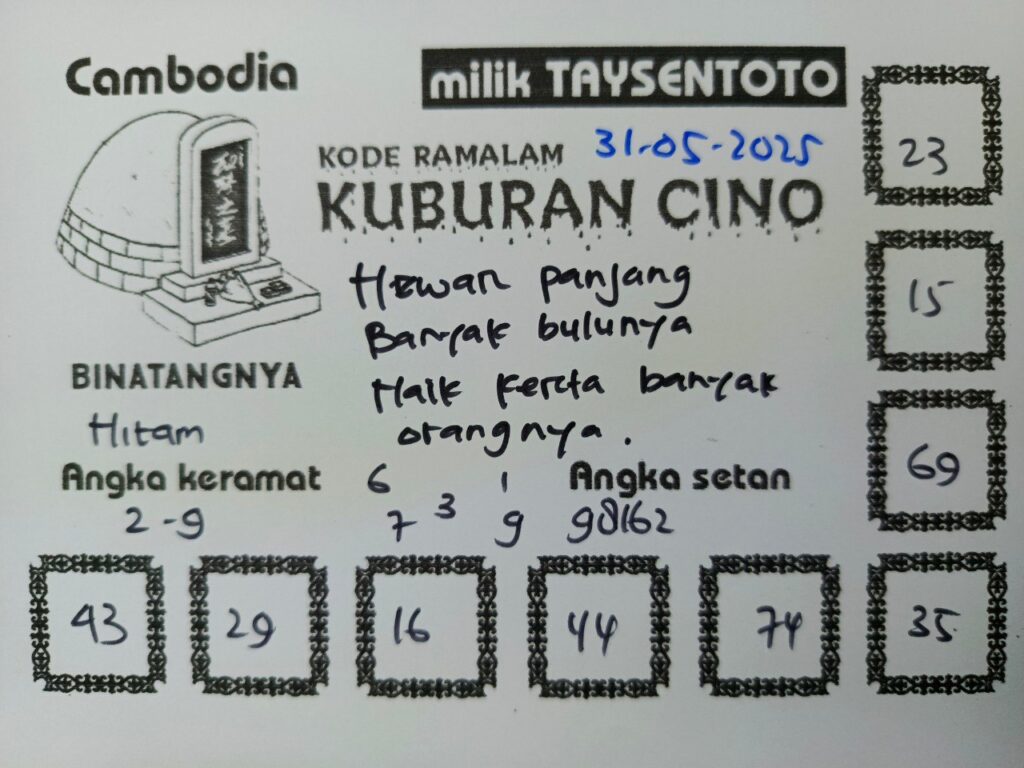 Cambodia
milik TAYSENTOTO
KODE RAMALAM 31-05-2025
KUBURAN CINO
Hewan panjang
Banyak bulunya
Naik kereta banyak
orangnya.
BINATANGNYA
Hitam
Angka keramat
2-9
6 1
7 3 9
Angka setan
98162
23
15
69
43 29 16 44 74 35